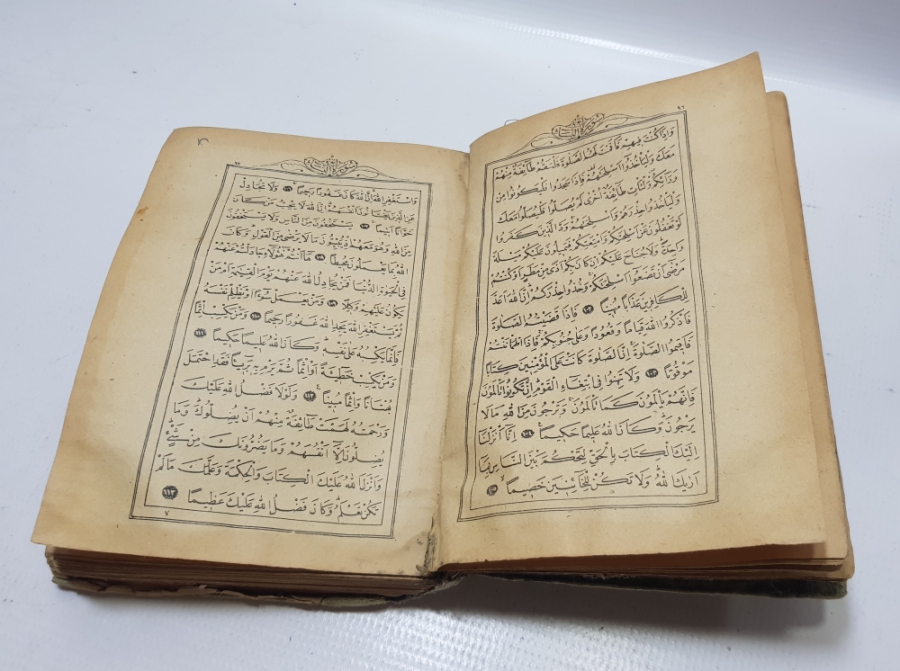 ٩٦
سورة النساء
وَاِذَا كُنْتَ فِيهِمْ فَاَقَمْتَ لَهُمُ الصَّلٰوةَ فَلْتَقُمْ طَٓائِفَةٌ مِنْهُمْ
مَعَكَ وَلْيَأْخُذُٓوا اَسْلِحَتَهُمْ فَاِذَا سَجَدُوا فَلْيَكُونُوا مِنْ
وَرَٓائِكُمْ وَلْتَأْتِ طَٓائِفَةٌ اُخْرٰى لَمْ يُصَلُّوا فَلْيُصَلُّوا مَعَكَ
وَلْيَأْخُذُوا حِذْرَهُمْ وَاَسْلِحَتَهُمْ وَدَّ الَّذِينَ كَفَرُوا
لَوْ تَغْفُلُونَ عَنْ اَسْلِحَتِكُمْ وَاَمْتِعَتِكُمْ فَيَمِيلُونَ عَلَيْكُمْ مَيْلَةً
وَاحِدَةً وَلَا جُنَاحَ عَلَيْكُمْ اِنْ كَانَ بِكُمْ اَذًى مِنْ مَطَرٍ اَوْ كُنْتُمْ
مَرْضٰٓى اَنْ تَضَعُٓوا اَسْلِحَتَكُمْ وَخُذُوا حِذْرَكُمْ اِنَّ اللّٰهَ اَعَدَّ
لِلْكَافِرِينَ عَذَابًا مُهِينًا ١٠٢ فَاِذَا قَضَيْتُمُ الصَّلٰوةَ
فَاذْكُرُوا اللّٰهَ قِيَامًا وَقُعُودًا وَعَلٰى جُنُوبِكُمْ فَاِذَا اطْمَاْنَنْتُمْ
فَاَقِيمُوا الصَّلٰوةَ اِنَّ الصَّلٰوةَ كَانَتْ عَلَى الْمُؤْمِنِينَ كِتَابًا
مَوْقُوتًا ١٠٣ وَلَا تَهِنُوا فِي ابْتِغَٓاءِ الْقَوْمِ اِنْ تَكُونُوا تَأْلَمُونَ
فَاِنَّهُمْ يَأْلَمُونَ كَمَا تَأْلَمُونَ وَتَرْجُونَ مِنَ اللّٰهِ مَا لَا
يَرْجُونَ وَكَانَ اللّٰهُ عَلِيمًا حَكِيمًا ١٠٤ اِنَّٓا اَنْزَلْنَٓا
اِلَيْكَ الْكِتَابَ بِالْحَقِّ لِتَحْكُمَ بَيْنَ النَّاسِ بِمَٓا
اَرٰيكَ اللّٰهُ وَلَا تَكُنْ لِلْخَٓائِنِينَ خَصِيمًا ١٠٥
سورة النساء
وَاسْتَغْفِرِ اللّٰهَ اِنَّ اللّٰهَ كَانَ غَفُورًا رَحِيمًا ١٠٦ وَلَا تُجَادِلْ
عَنِ الَّذِينَ يَخْتَانُونَ اَنْفُسَهُمْ اِنَّ اللّٰهَ لَا يُحِبُّ مَنْ كَانَ
خَوَّانًا اَثِيمًا ١٠٧ يَسْتَخْفُونَ مِنَ النَّاسِ وَلَا يَسْتَخْفُونَ
مِنَ اللّٰهِ وَهُوَ مَعَهُمْ اِذْ يُبَيِّتُونَ مَا لَا يَرْضٰى مِنَ الْقَوْلِ وَكَانَ
اللّٰهُ بِمَا يَعْمَلُونَ مُحِيطًا ١٠٨ هَٓا اَنْتُمْ هٰٓؤُلَٓاءِ جَادَلْتُمْ عَنْهُمْ
فِي الْحَيٰوةِ الدُّنْيَا فَمَنْ يُجَادِلُ اللّٰهَ عَنْهُمْ يَوْمَ الْقِيٰمَةِ اَمْ مَنْ
يَكُونُ عَلَيْهِمْ وَكِيلًا ١٠٩ وَمَنْ يَعْمَلْ سُٓوءًا اَوْ يَظْلِمْ نَفْسَهُ
ثُمَّ يَسْتَغْفِرِ اللّٰهَ يَجِدِ اللّٰهَ غَفُورًا رَحِيمًا ١١٠ وَمَنْ يَكْسِبْ اِثْمًا
فَاِنَّمَا يَكْسِبُهُ عَلٰى نَفْسِهِ وَكَانَ اللّٰهُ عَلِيمًا حَكِيمًا ١١١
وَمَنْ يَكْسِبْ خَطِٓيئَةً اَوْ اِثْمًا ثُمَّ يَرْمِ بِهِ بَرِٓيئًا فَقَدِ احْتَمَلَ
بُهْتَانًا وَاِثْمًا مُبِينًا ١١٢ وَلَوْلَا فَضْلُ اللّٰهِ عَلَيْكَ
وَرَحْمَتُهُ لَهَمَّتْ طَٓائِفَةٌ مِنْهُمْ اَنْ يُضِلُّوكَ وَمَا
يُضِلُّونَ اِلَّٓا اَنْفُسَهُمْ وَمَا يَضُرُّونَكَ مِنْ شَيْءٍ
وَاَنْزَلَ اللّٰهُ عَلَيْكَ الْكِتَابَ وَالْحِكْمَةَ وَعَلَّمَكَ مَا لَمْ
تَكُنْ تَعْلَمُ وَكَانَ فَضْلُ اللّٰهِ عَلَيْكَ عَظِيمًا ١١٣
٧